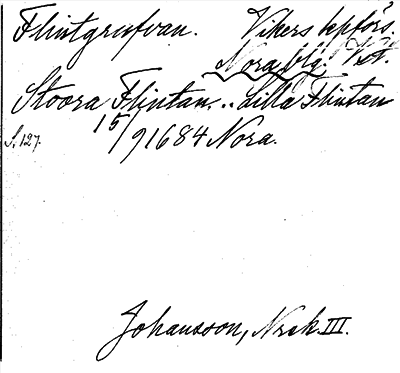 Flintgrufvan. Vikers kpförs.
Nora blg. Vstm.
Stoora Flintan. .. Lilla Flintan
S. 127. 15/9 1684 Nora.
Johansson, Nrck. III.